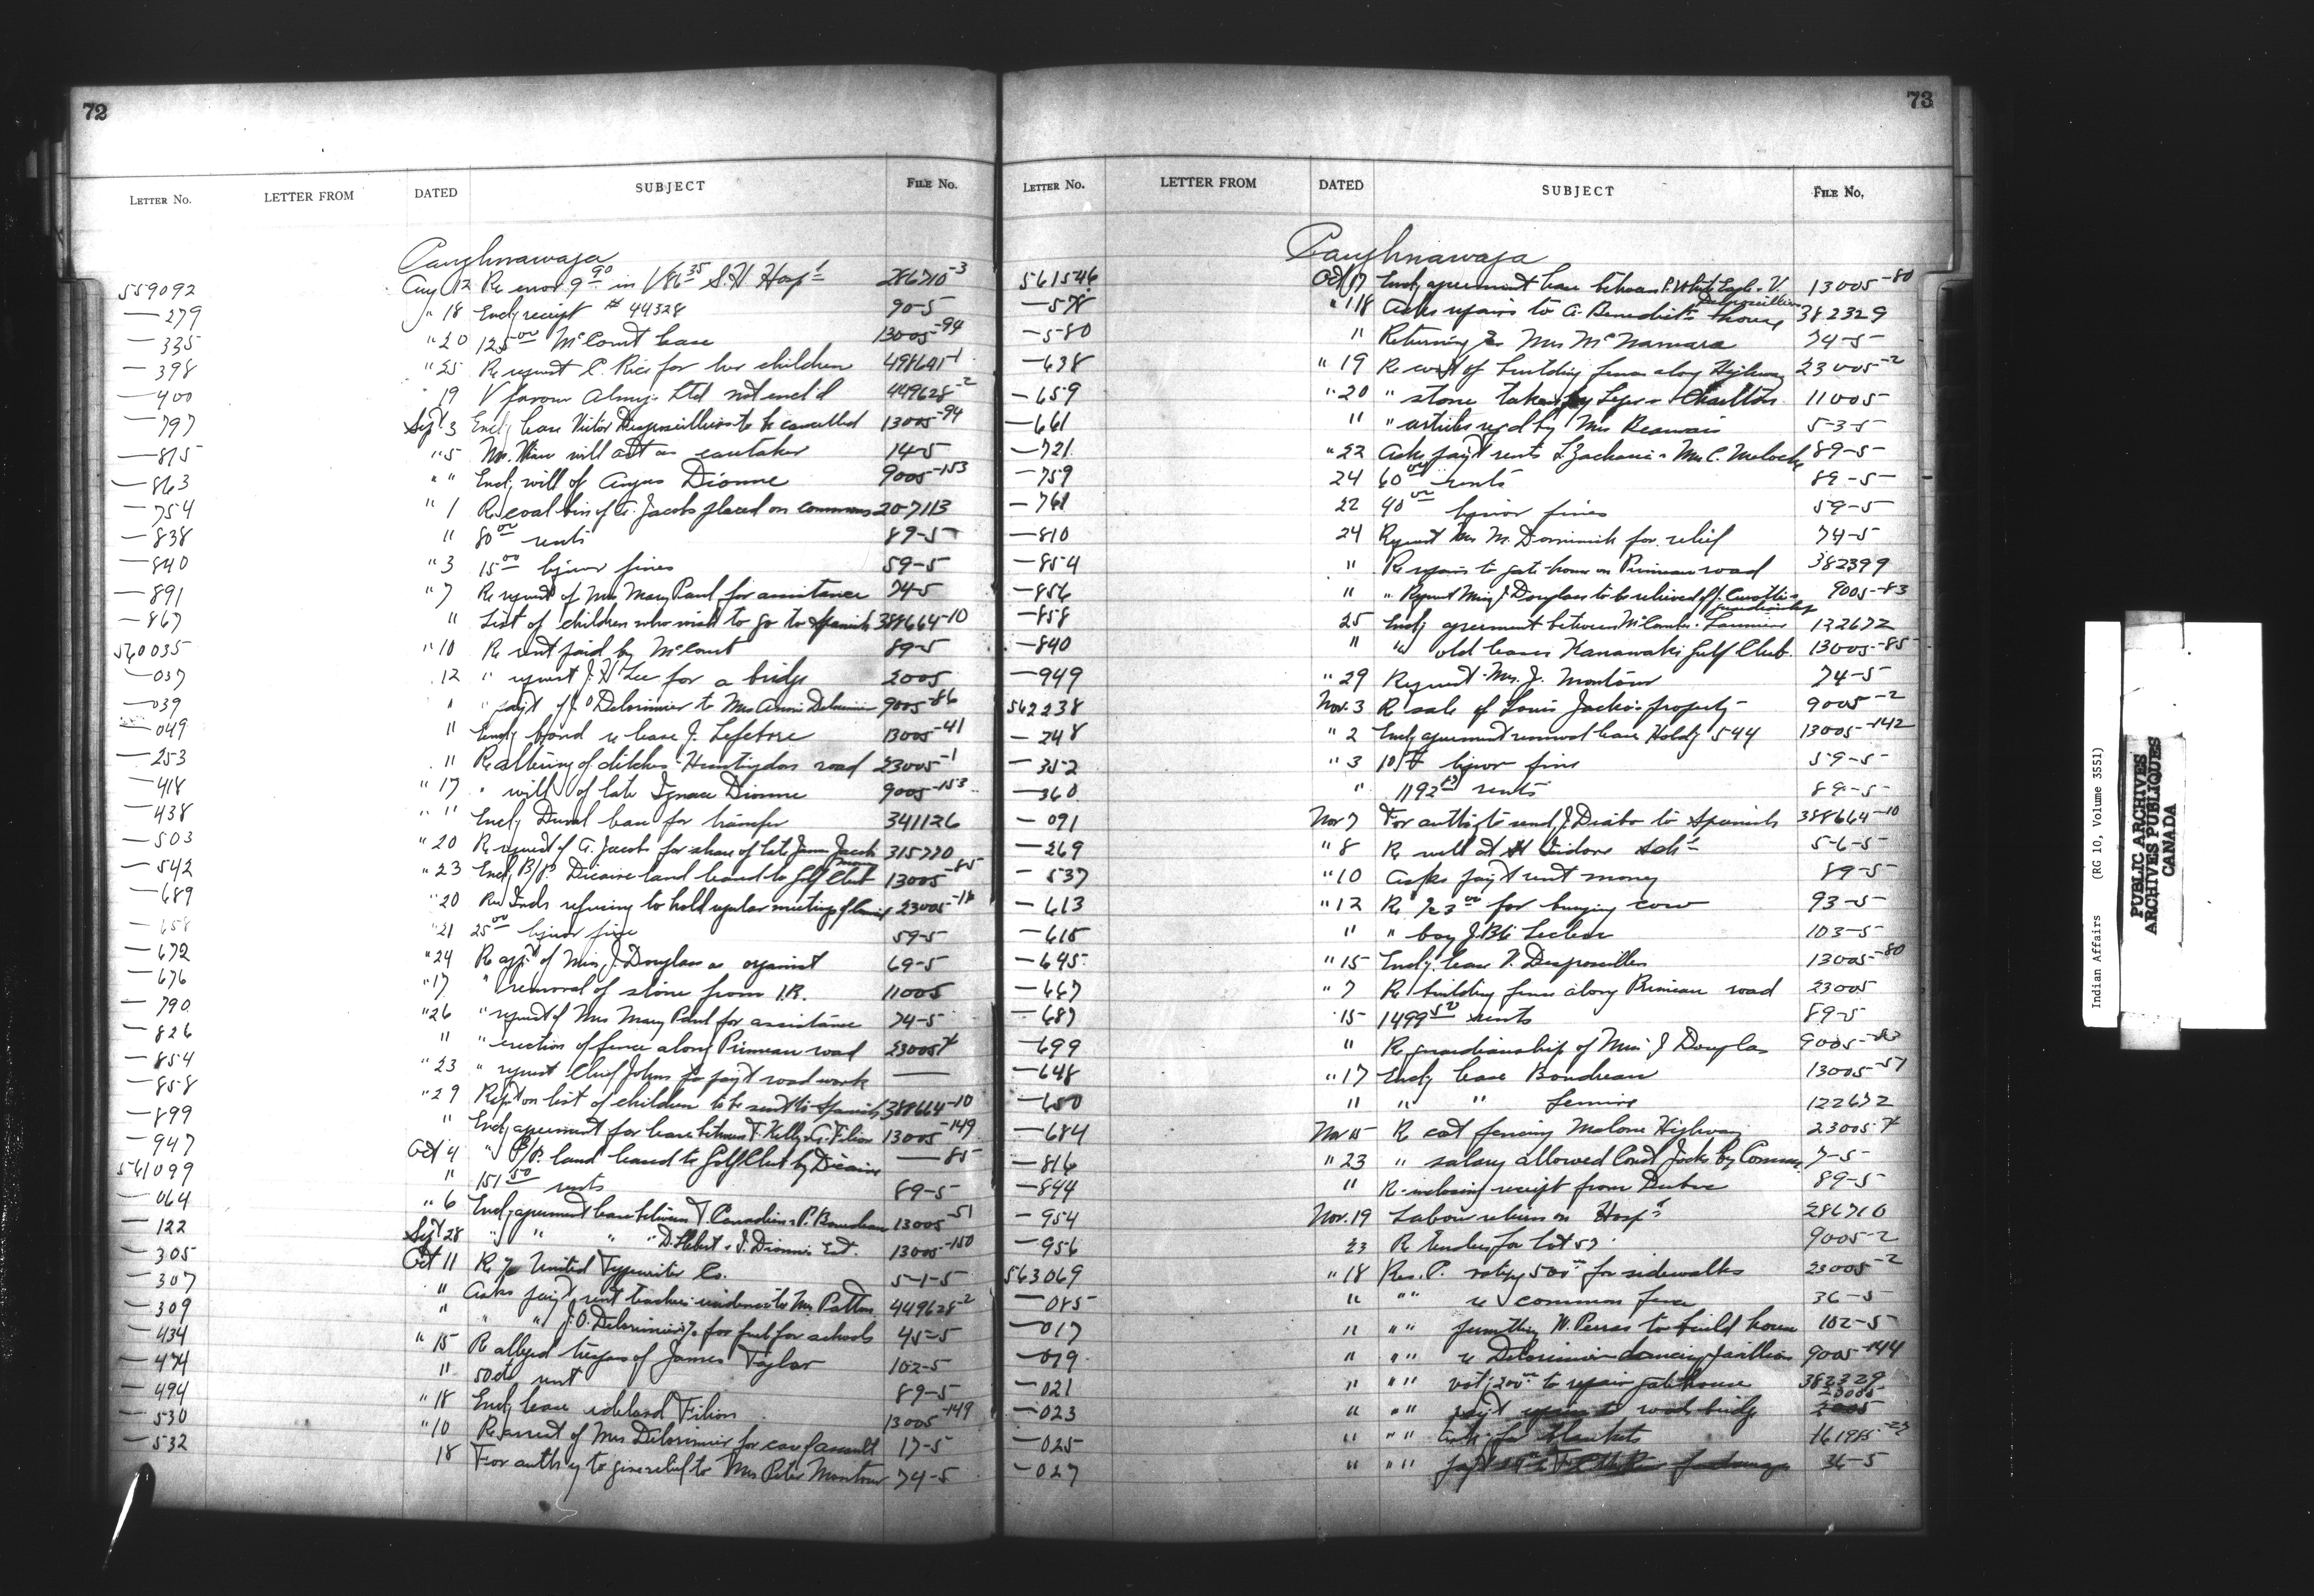 72
LETTER No. LETTER FROM DATED SUBJECT FILE No.
Caughnawaga
559092 Aug 12 Re error 9.90 in V 86.35 S.H. Hosp'l 286710-3
—279 " 18 Encl'g receipt # 44328 90-5
—335 " 20 125.00 McCourt lease 13005-94
—398 " 25 Re request C. Rice for her children 498601-1
—400 19 V favour Ltd not encl'd 449628-2
—797 Sept 3 Encl'g lease Victor to be cancelled 13005-94
—815 " 5 Mr. will act as caretaker 14-5
—863 " " Encl'g will of Angus Dionne 9005-153
—754 " 1 Re coal bin of A. Jacobs placed on commons 207113
—838 " 80.00 rents 89-5
—840 " 3 15.00 liquor fines 59-5
—891 " 7 Re request of Mrs Mary Paul for assistance 74-5
—867 " List of children who wish to go to Spanish 388664-10
560035 " 10 Re rent paid by McCourt 89-5
—037 12 " request J. H. Lee for a bridge 2005
—039 " " pay't of J. O Delorimier to Mrs Annie Delorimier 9005-86
—049 " Encl'g bond re lease J. Lefebvre 13005-41
—253 " Re altering of ditches Huntingdon road 23005-1
—418 " 17 " will of late Ignace Dionne 9005-153
—438 " " Encl'g lease for transfer 341126
—503 " 20 Re request of A. Jacobs for share of late Jacob money 315770
—542 " 23 Encl'g B/P. Dicaire land leased to Golf Club 13005-85
—689 " 20 Re Inds refusing to hold regular meetings of 23005-18
—658 " 21 25.00 liquor fine 59-5
—672 " 24 Re app't of Miss J. Douglass as organist 69-5
—676 " 17 " removal of stone from I.R. 11005
—790 " 26 " request of Mrs Mary Paul for assistance 74-5
—826 " " erection of fence along Primeau road 23005
—854 " 23 " request Chief Johns for pay't road work —
—858 " 29 Rep't on list of children to be sent to Spanish 388664-10
—899 " Encl'g agreement for lease between T. Kelly & G. Filion 13005-149
—947 Oct 4 " B/P. land leased to Golf Club by Dicaire —85
561099 " 151.50 rents 89-5
—064 " 6 Encl'g agreement lease between T. Canadien & P. Boudreau 13005-51
—122 Sept 28 " " " " D. Hebert & J. Dionne Est. 13005-150
—305 Oct 11 Re United Typewriter Co. 5-1-5
—307 " Asks pay't rent teachers residence to Mrs Patton 449628-2
—309 " " " J. O. Delorimier for fuel for schools 45-5
—434 " 15 Re alleged trespass of James Taylor 102-5
—474 " 50cts rent 89-5
—494 " 18 Encl'g lease Filion 13005-149
—530 " 10 Re arrest of Mrs Delorimier for assault 17-5
—532 18 For auth'y to give relief to Mrs Peter Montour 74-5
73
LETTER No. LETTER FROM DATED SUBJECT FILE No.
Caughnawaga
561546 Oct 17 Encl'g agreement lease between P. White Eagle & V. 13005-80
—578 " 18 Asks repairs to A. Benedict's house 382329
—580 " Returning Mrs McNamara 74-5
—638 " 19 Re cost of building fence along Highway 23005-2
—659 " 20 " stone taken by 11005
—661 " " articles req'd by Mrs Beauvais 5-3-5
—721 " 22 Asks pay't rents L. Zacharie & Mrs C. Meloche 89-5
—759 24 60.00 rents 89-5
—761 22 40.00 liquor fines 59-5
—810 24 Request Mrs M. Dominick for relief 74-5
—854 " Re repairs to gate-house on Primeau road 382399
—856 " " Request Miss J. Douglass to be relieved of guardianship 9005-83
—858 25 Encl'g agreement between McComber & 122672
—840 " " old leases Kanawaki Golf Club 13005-85
—949 " 29 Request Mrs. J. Montour 74-5
562238 Nov. 3 Re sale of Louis Jacko's property 9005-2
—248 " 2 Encl'g agreement renewal lease Hold'g 544 13005-142
—352 " 3 liquor fine 59-5
—360 " 1192. rents 89-5
—091 Nov 7 For auth'y to send J. Diabo to Spanish 388664-10
—269 " 8 Re well at St Isidore Sch'l 5-6-5
—537 " 10 Asks pay't rent money 89-5
—613 " 12 Re 23.00 for burying cow 93-5
—615 " " boy 103-5
—645 " 15 Encl'g lease V. 13005-80
—667 " 7 Re building fence along Primeau road 23005
—687 15 1499.50 rents 89-5
—699 " Re guardianship of Miss J Douglas 9005-83
—648 " 17 Encl'g lease Boudreau 13005-51
—650 " " " 122672
—684 Nov 15 Re cost fencing Malone Highway 23005
—816 " 23 " salary allowed Const Jacks by 7-5
—844 " Re-inclosing receipt from 89-5
—954 Nov. 19 Labour returns on Hosp'l 286710
—956 23 Re tenders for lot 57 9005-2
563069 " 18 Res. C. 500.00 for sidewalks 23005-2
—085 " " " re common fence 36-5
—017 " " " permitting W. Perras to build house 102-5
—019 " " " re Delorimier dancing pavillion 9005-144
—021 " " " vot'g 200.00 to repair gatehouse 382329
—023 " " " pay't road bridge 23005
—025 " " " for blankets 161985-23
—027 " " " 36-5
Indian Affairs (RG 10, Volume 3551)
PUBLIC ARCHIVES
ARCHIVES PUBLIQUES
CANADA